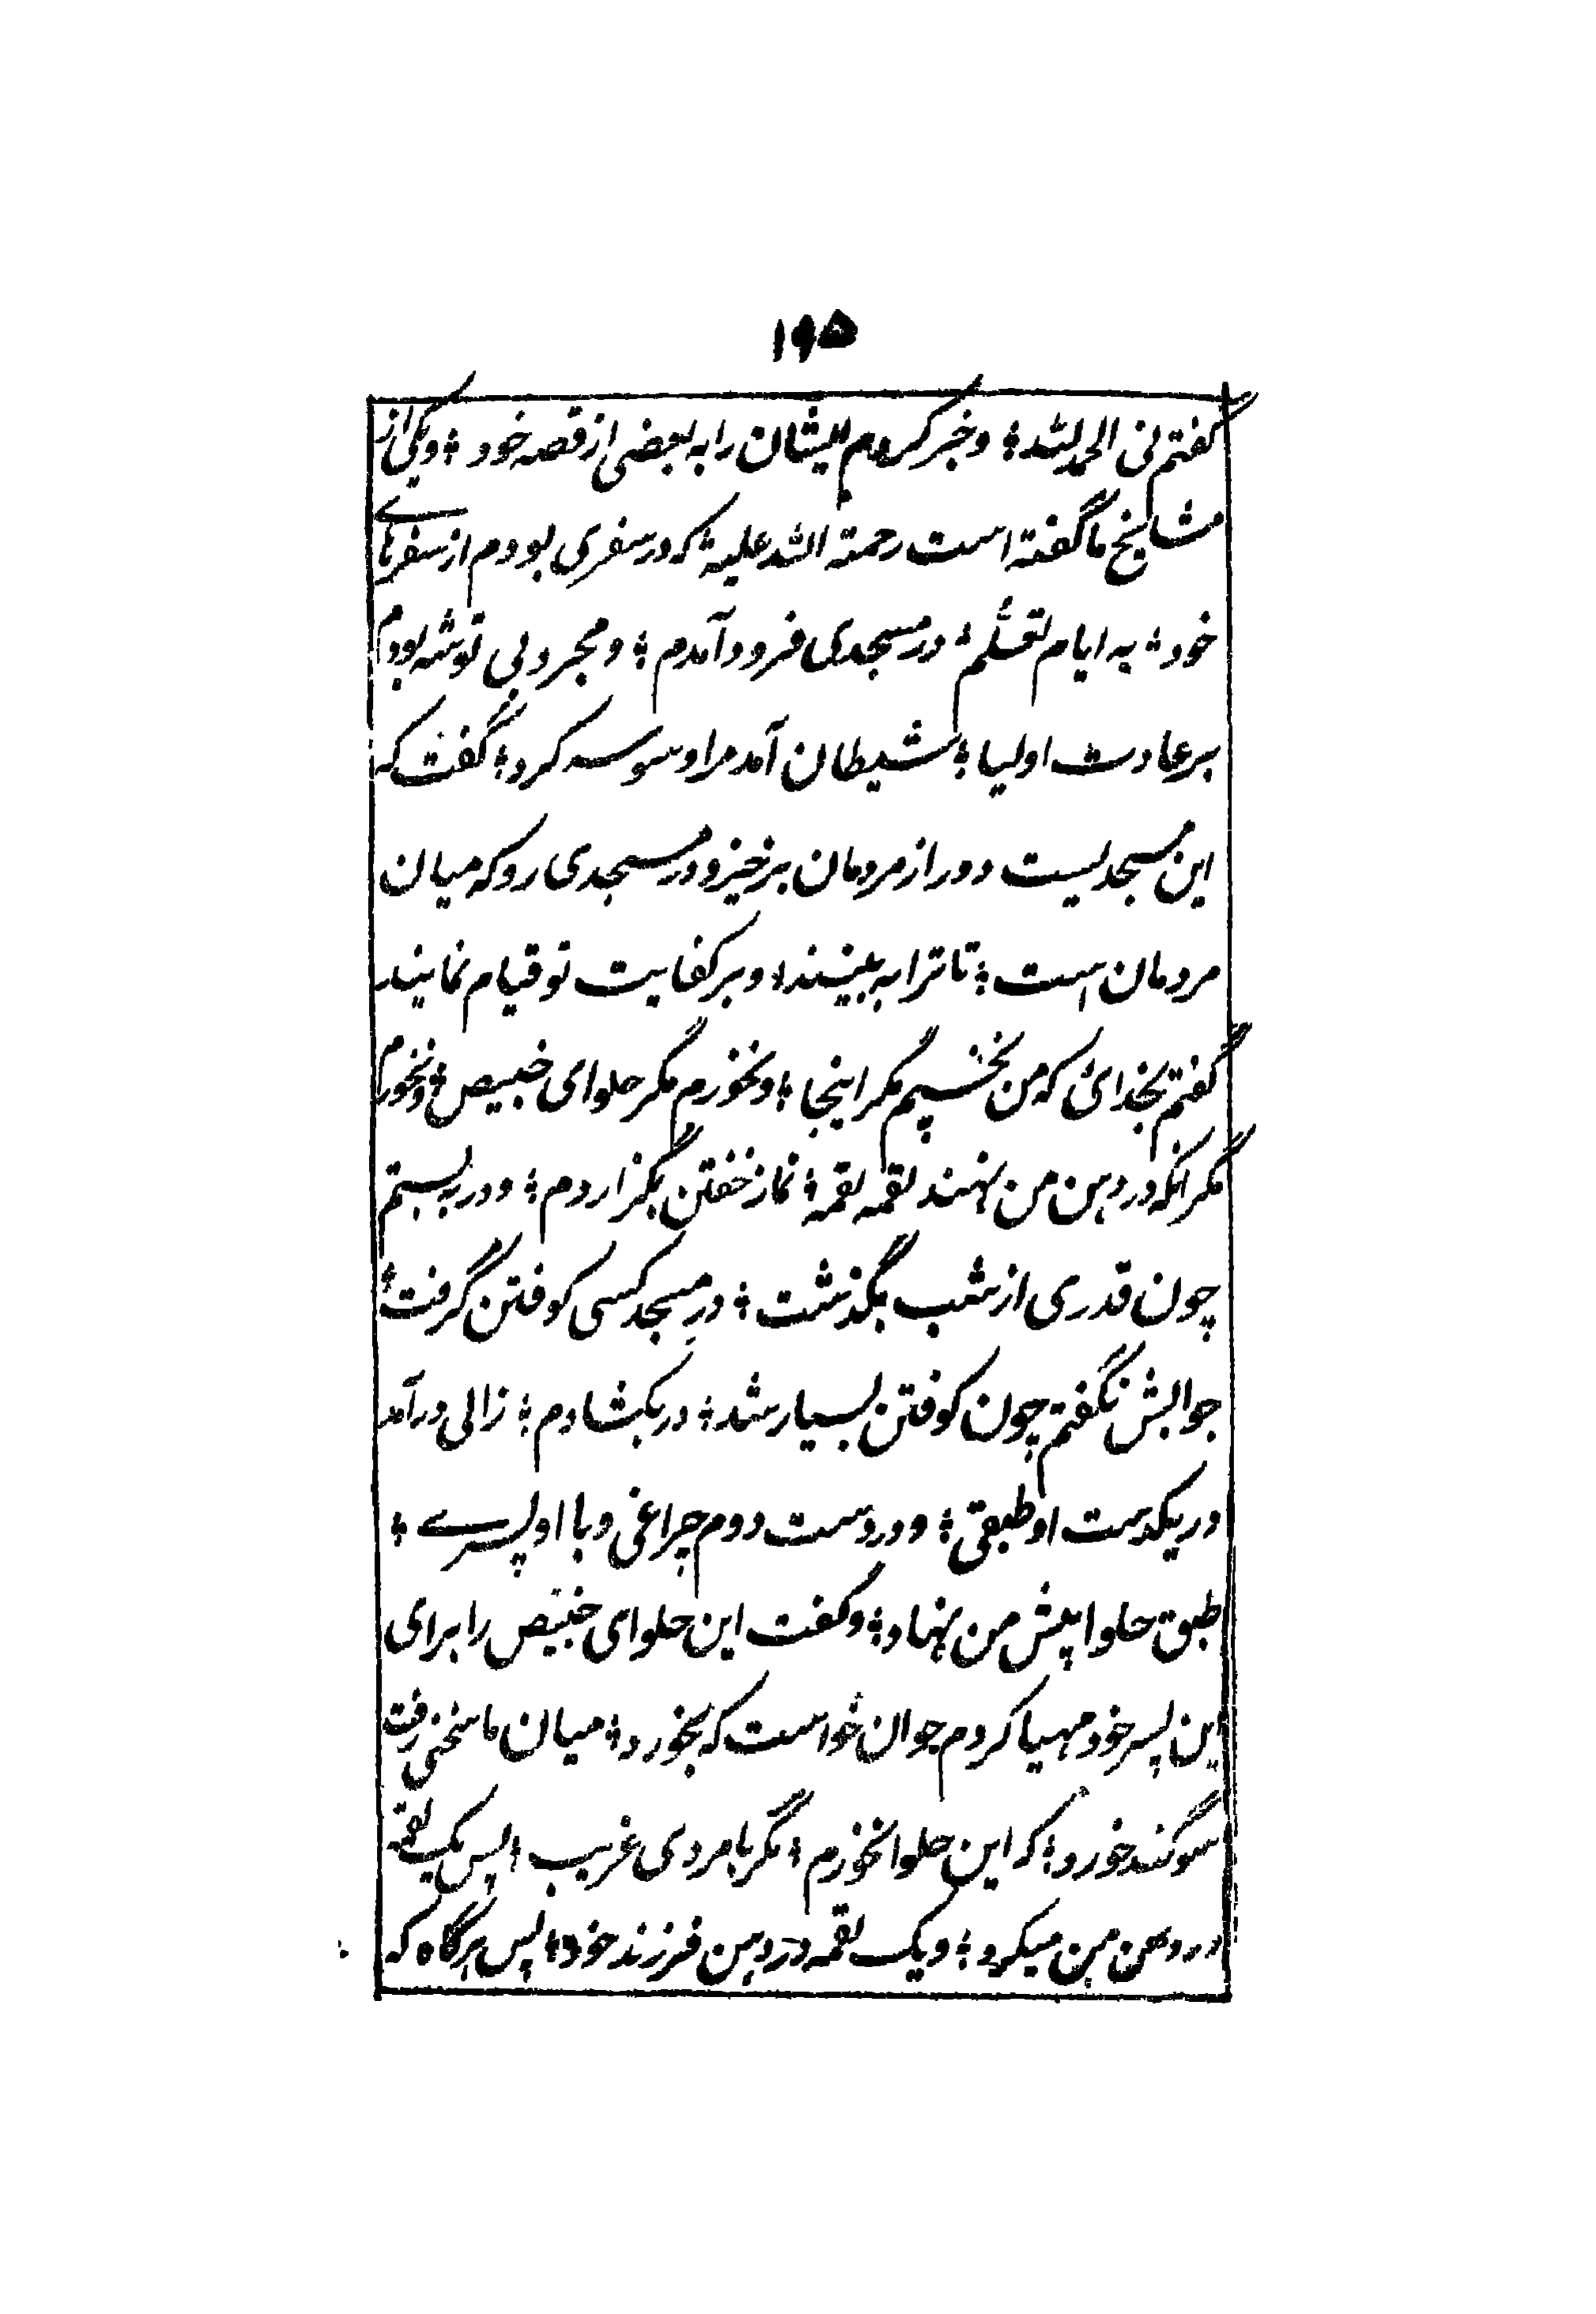 ۱۹۵
گفتم نی الحمد لله ؛ و خبر کردم ایشان را به بعضی از قصه خود ؛ و یکی از
مشایخ ما گفته است رحمته الله علیه ؛ که در سفری بودم از سفرهاے
خود ؛ به ایام تعلّم ؛ در مسجدی فرود آمدم ؛ و مجرد بی توشه بودم
بر عادت اولیا ؛ شیطان آمد مرا وسوسه کرد ؛ گفت که
این مسجدیست دور از مردمان برخیز و در مسجدی رو که میان
مردمان است ؛ تا ترا به بینند ؛ و بر کفایت تو قیام نمایند
گفتم بخدائ که من نخسپم مگر اینجا ؛ و نخورم مگر حلوای خبیص ؛ و نخورم
مگر انکه در دهن من نهند لقمه لقمه ؛ نماز خفتن بگزاردم ؛ و در به بستم
چون قدری از شب بگذشت ؛ درِ مسجد کسی کوفتن گرفت ؛
جوابش نگفتم چون کوفتن بسیار شد ؛ در بکشادم ؛ زالی در آمد
در یکدست او طبقی ؛ و در دست دوم چراغی و با او پسرے ؛
طبق حلوا پیش من نهاد ؛ و گفت این حلوای خبیص را برای
این پسر خود مهیا کردم جوان خواست که بخورد ؛ میان ما سخنی رفت
سوگند خورد ؛ که این حلوا نخورم ؛ مگر با مردی غریب ؛ پس یک لقمه
در دهن من میکرد ؛ و یک لقمه در دهن فرزند خود ؛ پس هرگاه که